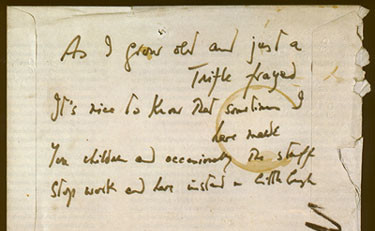 As I grow old and just a
Trifle frayed
It's nice to know that sometimes I
have made
You children and occasionally the staff
Stop work and have instead a little laugh